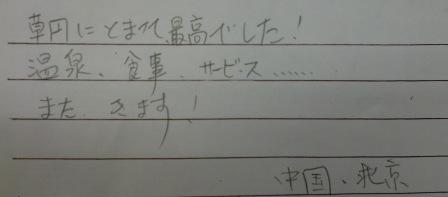 草円にとまて、最高でした!
温泉、食事、サービス……
また、きます!
中国、北京